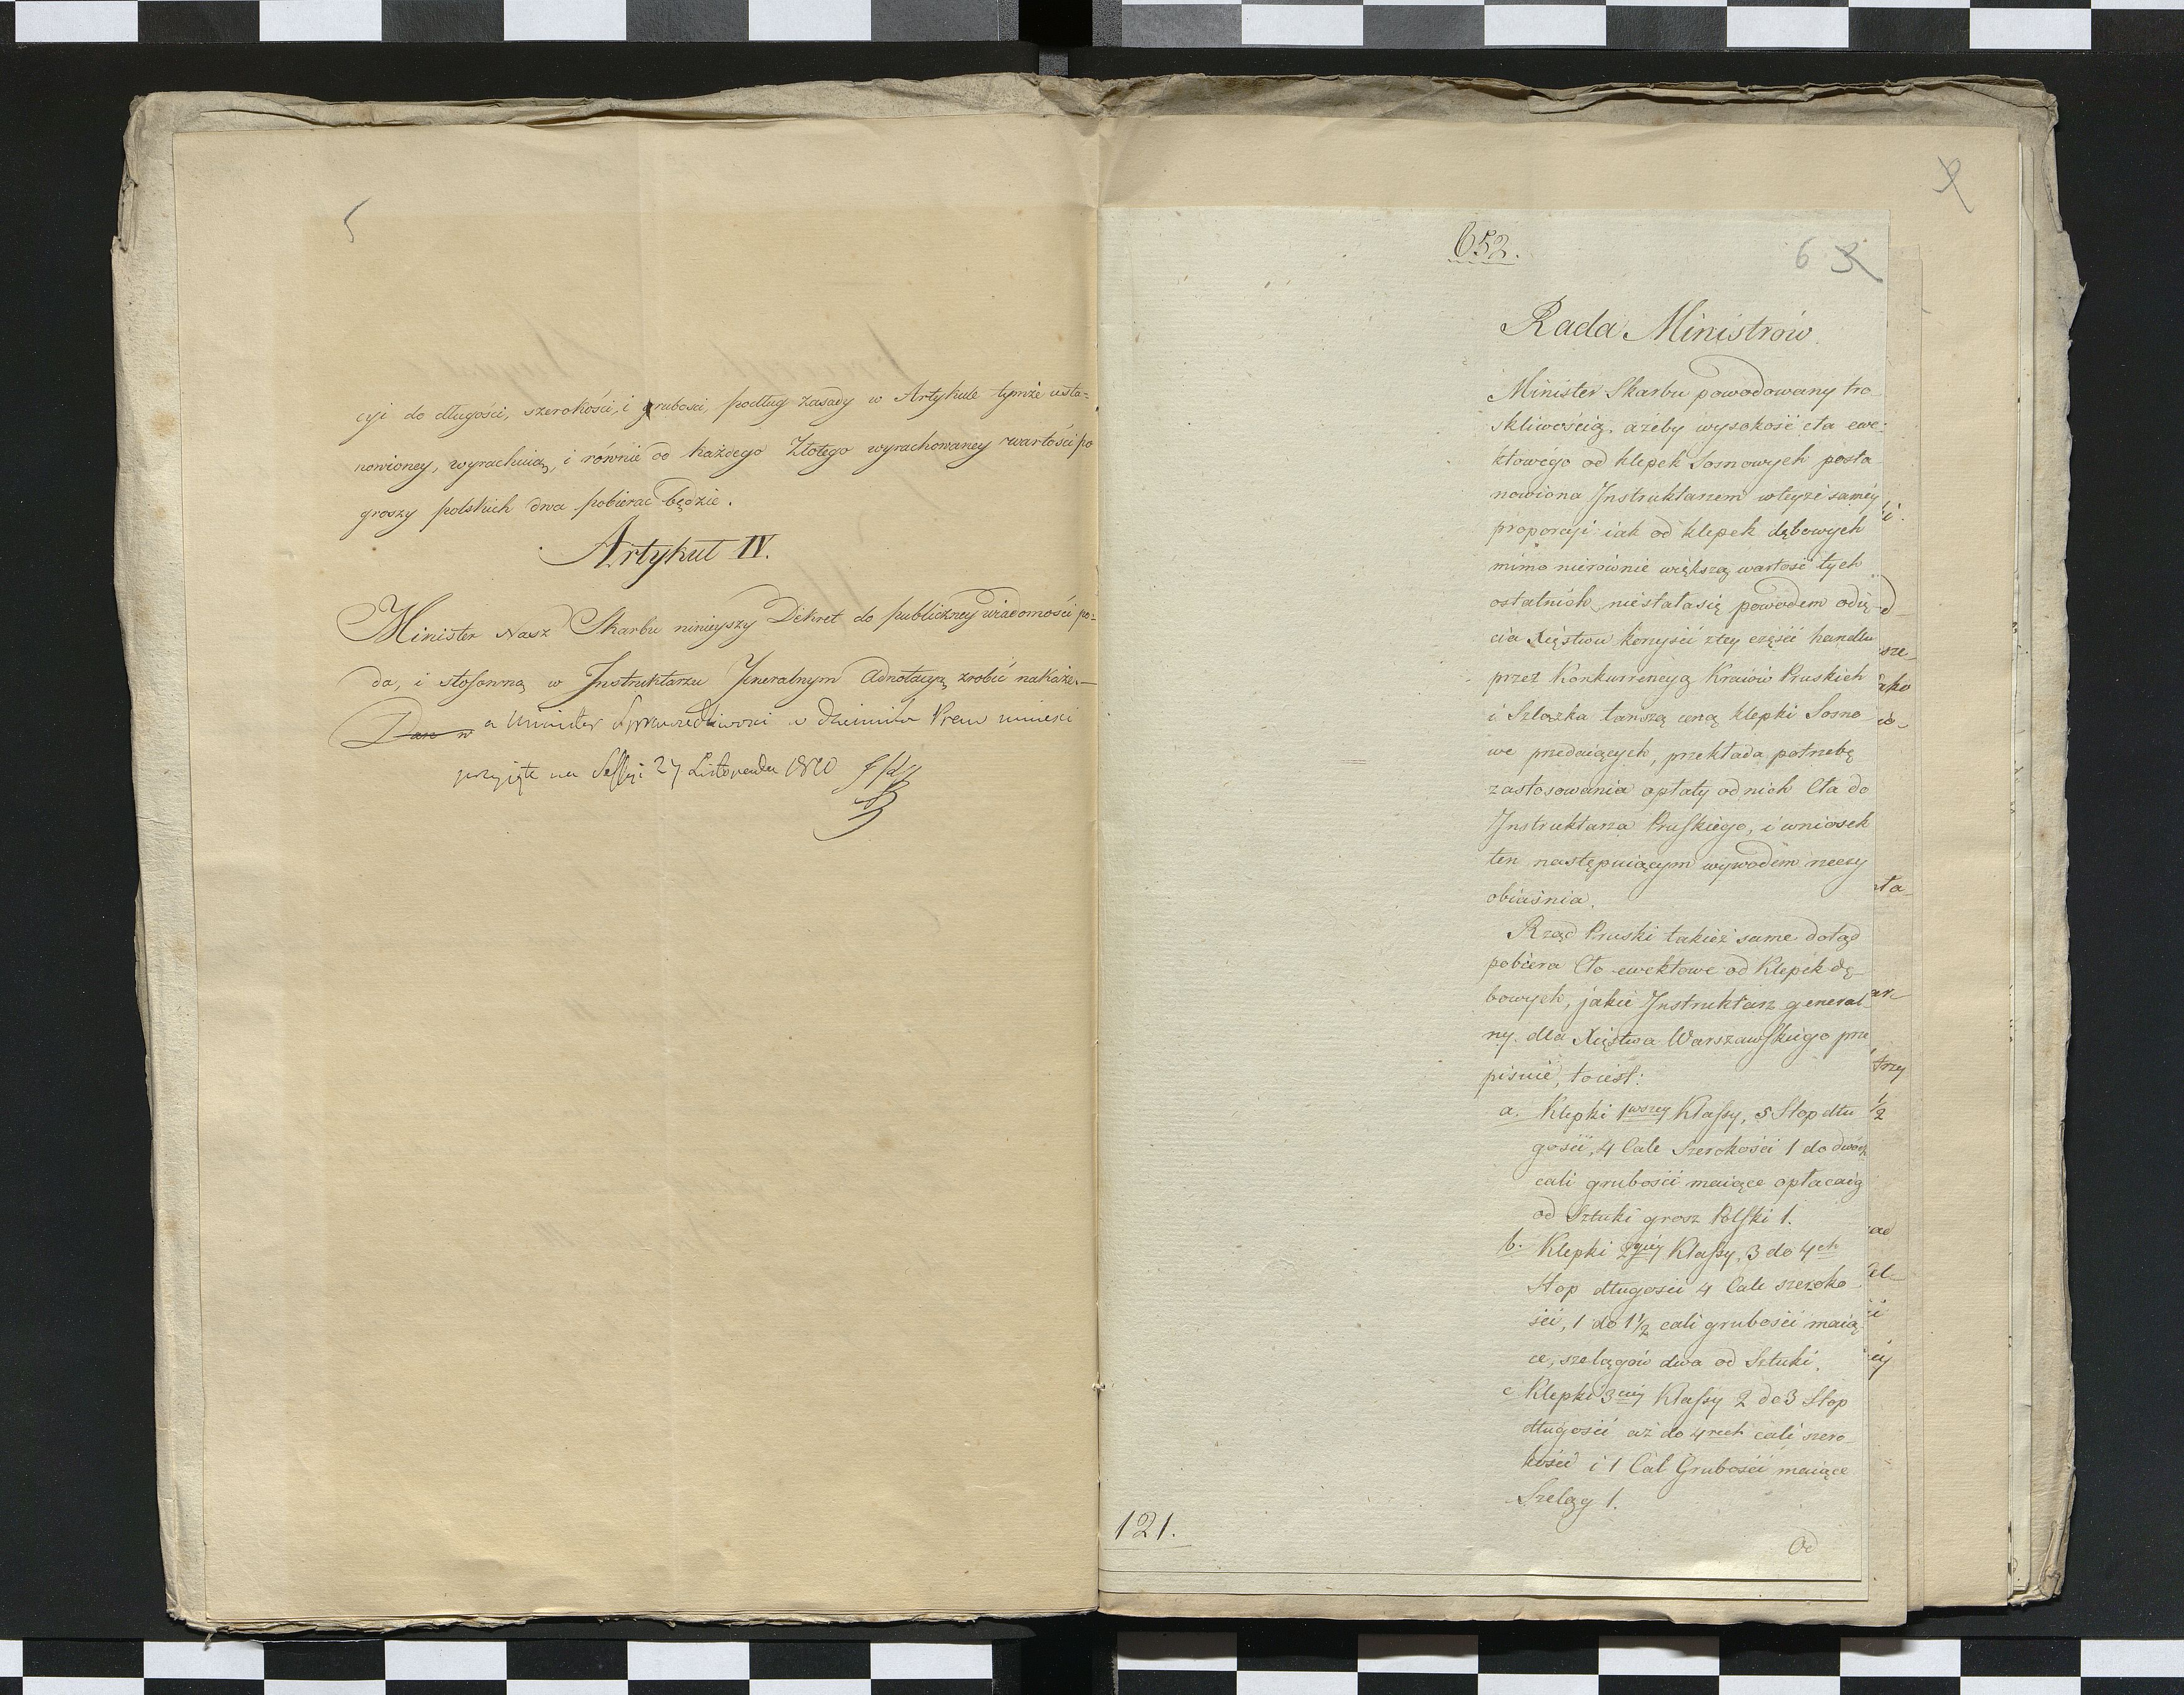 5
cyi do długości, szerokości, i grubości, podług zasady w Artykule tymże usta=
nowioney, wyrachuią, i równie od każdego Złotego wyrachowaney wartości po
groszy polskich dwa pobierać będzie.
Artykuł IV.
Minister Nasz Skarbu ninieyszy Dekret do publiczney wiadomości po=
da, i stosowną w Instruktarzu Jeneralnym Adnotacyą zrobić nakaże.—
Dan w a Minister Sprawiedliwości w Dzienniku Praw umieści
przyjęte na Sessyi 27 Listopada 1810
652.
6 3
Rada Ministrów
Minister Skarbu powodowany tro
skliwością, ażeby wysokość cła ewe=
ktowego od klepek Sosnowych posta
nowiona Instruktarzem w teyże saméy
proporcyi iak od klepek dębowych
mimo nierównie większą wartość tych
ostatnich, niestała się powodem odię
cia Xięstwu korzyści z tey części handlu
przez Konkurrencyą Kraiów Pruskich
i Szląska tańszą ceną klepki Sosno
we przedaiących, przekłada potrzebę
zastosowania opłaty od nich Cła do
Instruktarza Pruskiego, i wniosek
ten następuiącym wywodem rzeczy
obiaśnia.
Rząd Pruski takież same dotąd
pobiera Cło ewektowe od Klepek dę=
bowych, jakie Instruktarz general
ny dla Xięstwa Warszawskiego prze
pisuie, to iest:
a. Klepki 1wszey Klassy, 5 Stop dłu
gości, 4 Cale Szerokości 1 do dwóch
cali grubości maiące opłacaią
od Sztuki grosz Polski 1.
b. Klepki 2giéy Klassy, 3 do 4ch
Stop długości 4 Cale szeroko
ści, 1 do 1½ cali grubości maią
ce, szelągów dwa od Sztuki.
c Klepki 3ciéy Klassy 2 do 3 Stop
długości aż do 4rech cali szero=
kości i 1 Cal Grubości maiące
Szeląg 1.
Od
121.